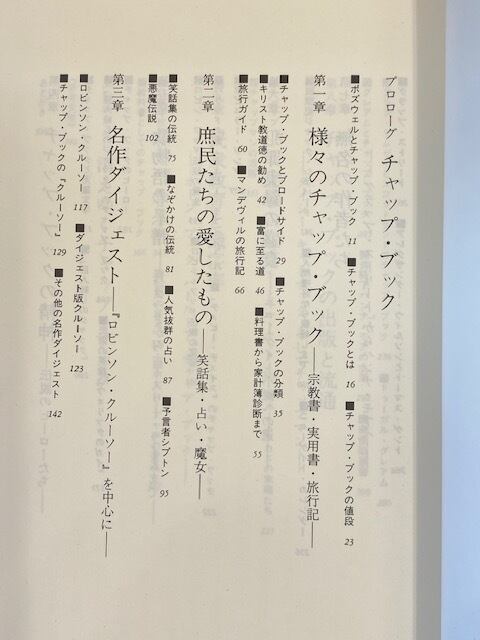 プロローグ　チャップ・ブック
■ボズウェルとチャップ・ブック　11　■チャップ・ブックとは　16　■チャップ・ブックの値段　23
第一章　様々のチャップ・ブック――宗教書・実用書・旅行記――
■チャップ・ブックとブロードサイド　29　■チャップ・ブックの分類　35
■キリスト教道徳の勧め　42　■富に至る道　46　■料理書から家計簿診断まで　55
■旅行ガイド　60　■マンデヴィルの旅行記　66
第二章　庶民たちの愛したもの――笑話集・占い・魔女――
■笑話集の伝統　75　■なぞかけの伝統　81　■人気抜群の占い　87　■予言者シプトン　95
■悪魔伝説　102
第三章　名作ダイジェスト――『ロビンソン・クルーソー』を中心に――
■ロビンソン・クルーソー　117　■ダイジェスト版クルーソー　123
■チャップ・ブックの『クルーソー』　129　■その他の名作ダイジェスト　142